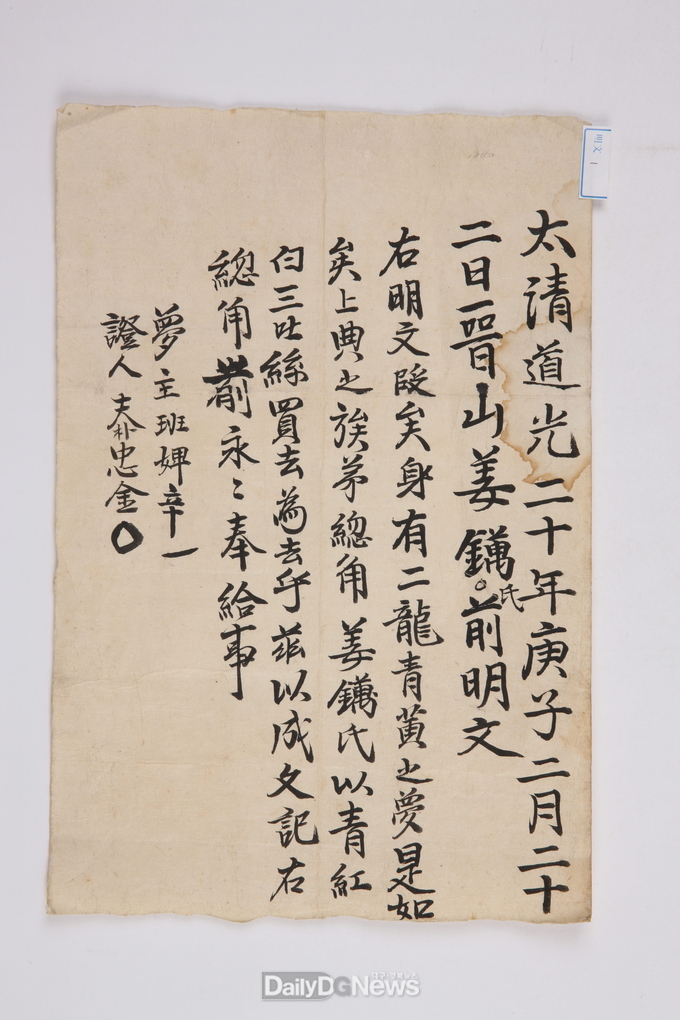 太清道光二十年庚子二月二十
二日晉山姜鏋氏前明文
右明文段矣身有二龍青黃之夢是如
矣上典之族弟總角姜鏋氏以青紅
白三吐絲買去為去乎茲以成文記右
總角前永〻奉給事
夢主班婢辛一
證人 夫朴忠金
明文 1
DailyDGNews